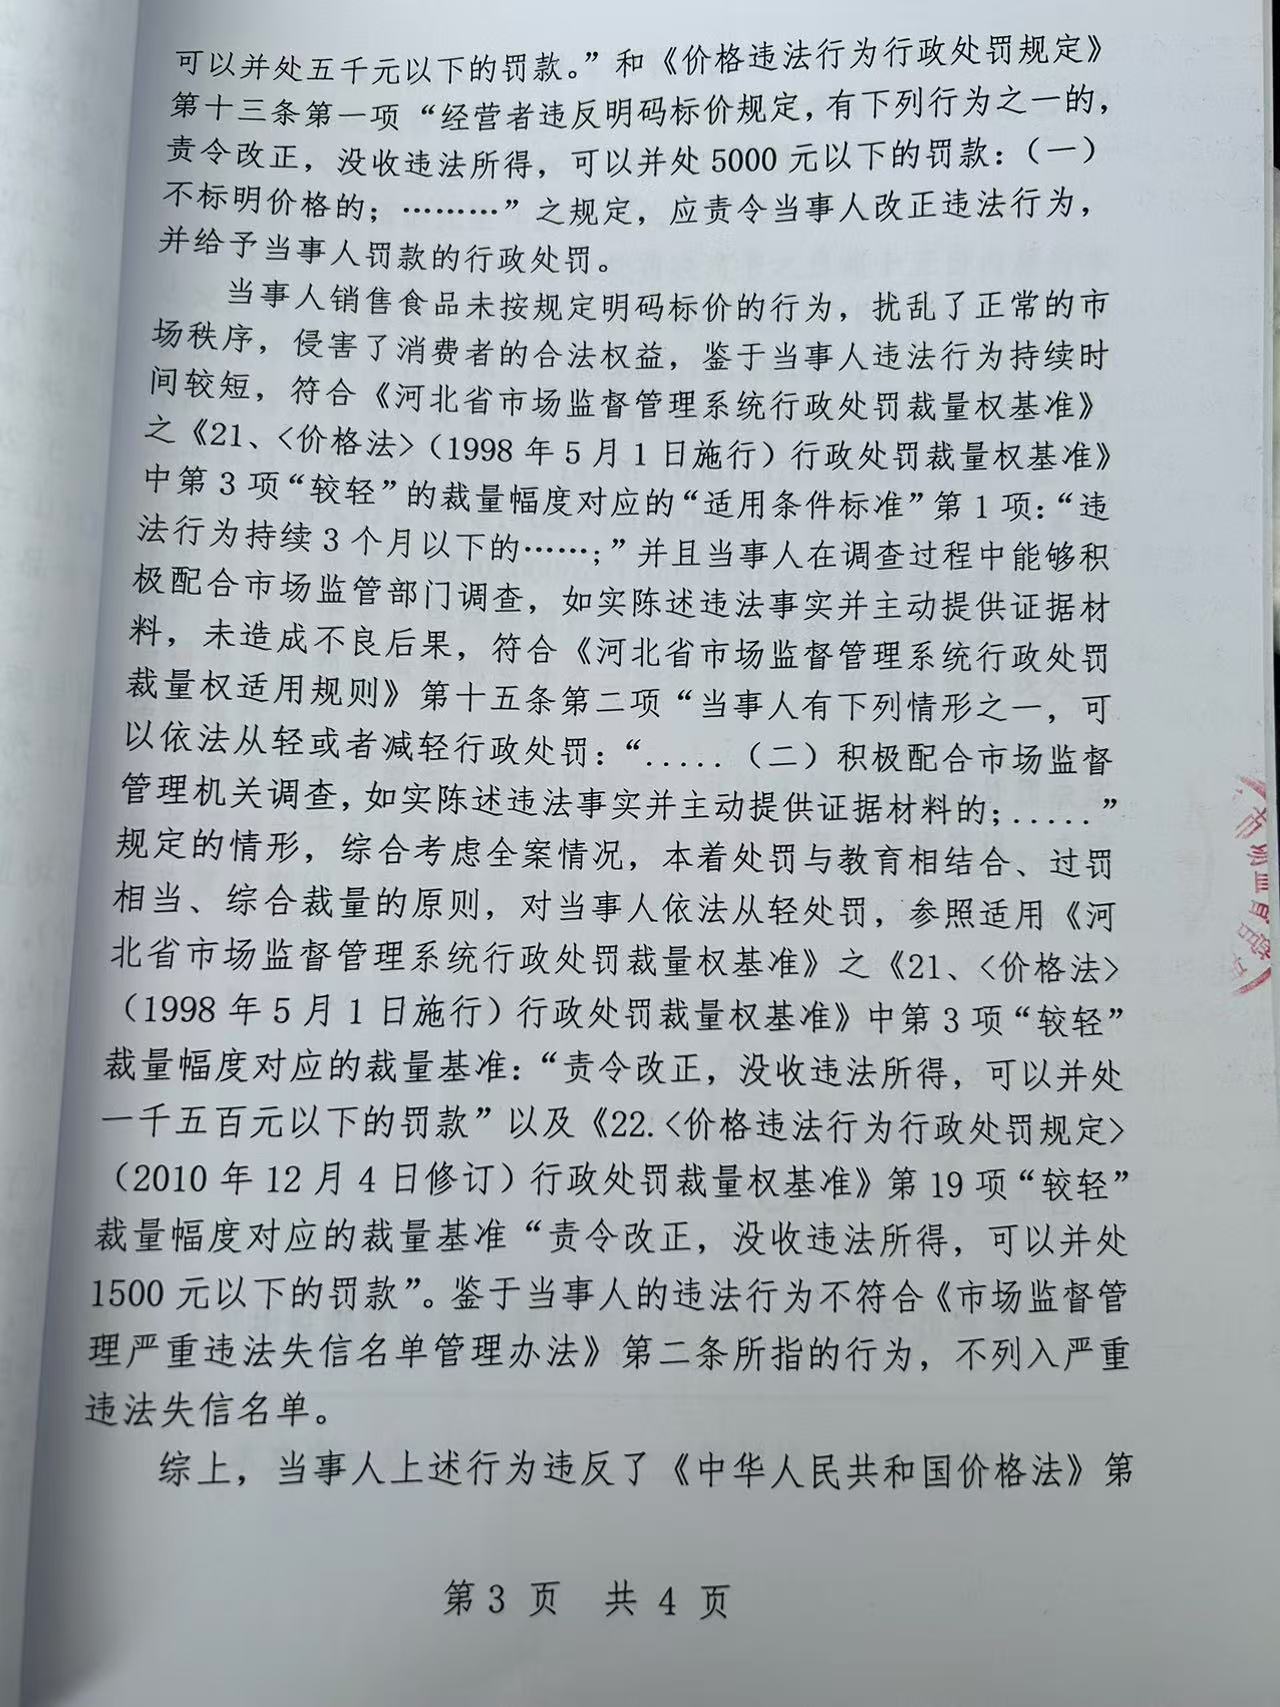 可以并处五千元以下的罚款。”和《价格违法行为行政处罚规定》
第十三条第一项“经营者违反明码标价规定，有下列行为之一的，
责令改正，没收违法所得，可以并处5000元以下的罚款：（一）
不标明价格的；………”之规定，应责令当事人改正违法行为，
并给予当事人罚款的行政处罚。
当事人销售食品未按规定明码标价的行为，扰乱了正常的市
场秩序，侵害了消费者的合法权益，鉴于当事人违法行为持续时
间较短，符合《河北省市场监督管理系统行政处罚裁量权基准》
之《21、<价格法>（1998年5月1日施行）行政处罚裁量权基准》
中第3项“较轻”的裁量幅度对应的“适用条件标准”第1项：“违
法行为持续3个月以下的……；”并且当事人在调查过程中能够积
极配合市场监管部门调查，如实陈述违法事实并主动提供证据材
料，未造成不良后果，符合《河北省市场监督管理系统行政处罚
裁量权适用规则》第十五条第二项“当事人有下列情形之一，可
以依法从轻或者减轻行政处罚：“.....（二）积极配合市场监督
管理机关调查，如实陈述违法事实并主动提供证据材料的；.....”
规定的情形，综合考虑全案情况，本着处罚与教育相结合、过罚
相当、综合裁量的原则，对当事人依法从轻处罚，参照适用《河
北省市场监督管理系统行政处罚裁量权基准》之《21、<价格法>
（1998年5月1日施行）行政处罚裁量权基准》中第3项“较轻”
裁量幅度对应的裁量基准：“责令改正，没收违法所得，可以并处
一千五百元以下的罚款”以及《22.<价格违法行为行政处罚规定>
（2010年12月4日修订）行政处罚裁量权基准》第19项“较轻”
裁量幅度对应的裁量基准“责令改正，没收违法所得，可以并处
1500元以下的罚款”。鉴于当事人的违法行为不符合《市场监督管
理严重违法失信名单管理办法》第二条所指的行为，不列入严重
违法失信名单。
综上，当事人上述行为违反了《中华人民共和国价格法》第
第3页 共4页